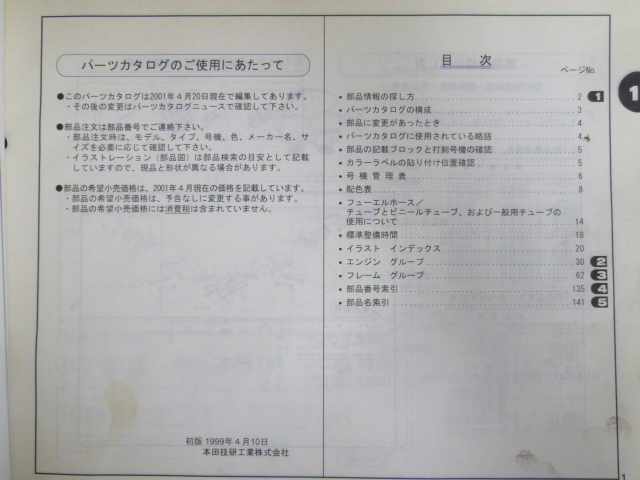 パーツカタログのご使用にあたって
●このパーツカタログは2001年4月20日現在で編集してあります。
・その後の変更はパーツカタログニュースで確認して下さい。
●部品注文は部品番号でご連絡下さい。
・部品注文時は、モデル、タイプ、号機、色、メーカー名、サ
イズを必要に応じて確認して下さい。
・イラストレーション（部品図）は部品検索の目安として記載
していますので、現品と形状が異なる場合があります。
●部品の希望小売価格は、2001年4月現在の価格を記載しています。
・部品の希望小売価格は、予告なしに変更する事があります。
・部品の希望小売価格には消費税は含まれていません。
初版 1999年4月10日
本田技研工業株式会社
目 次
ページNo.
• 部品情報の探し方 2 1
• パーツカタログの構成 3
• 部品に変更があったとき 4
• パーツカタログに使用されている略語 4
• 部品の記載ブロックと打刻号機の確認 5
• カラーラベルの貼り付け位置確認 5
• 号機管理表 6
• 配色表 8
• フューエルホース／
チューブとビニールチューブ、および一般用チューブの
使用について 14
• 標準整備時間 18
• イラスト インデックス 20
• エンジン グループ 30 2
• フレーム グループ 62 3
• 部品番号索引 135 4
• 部品名索引 141 5
1
1